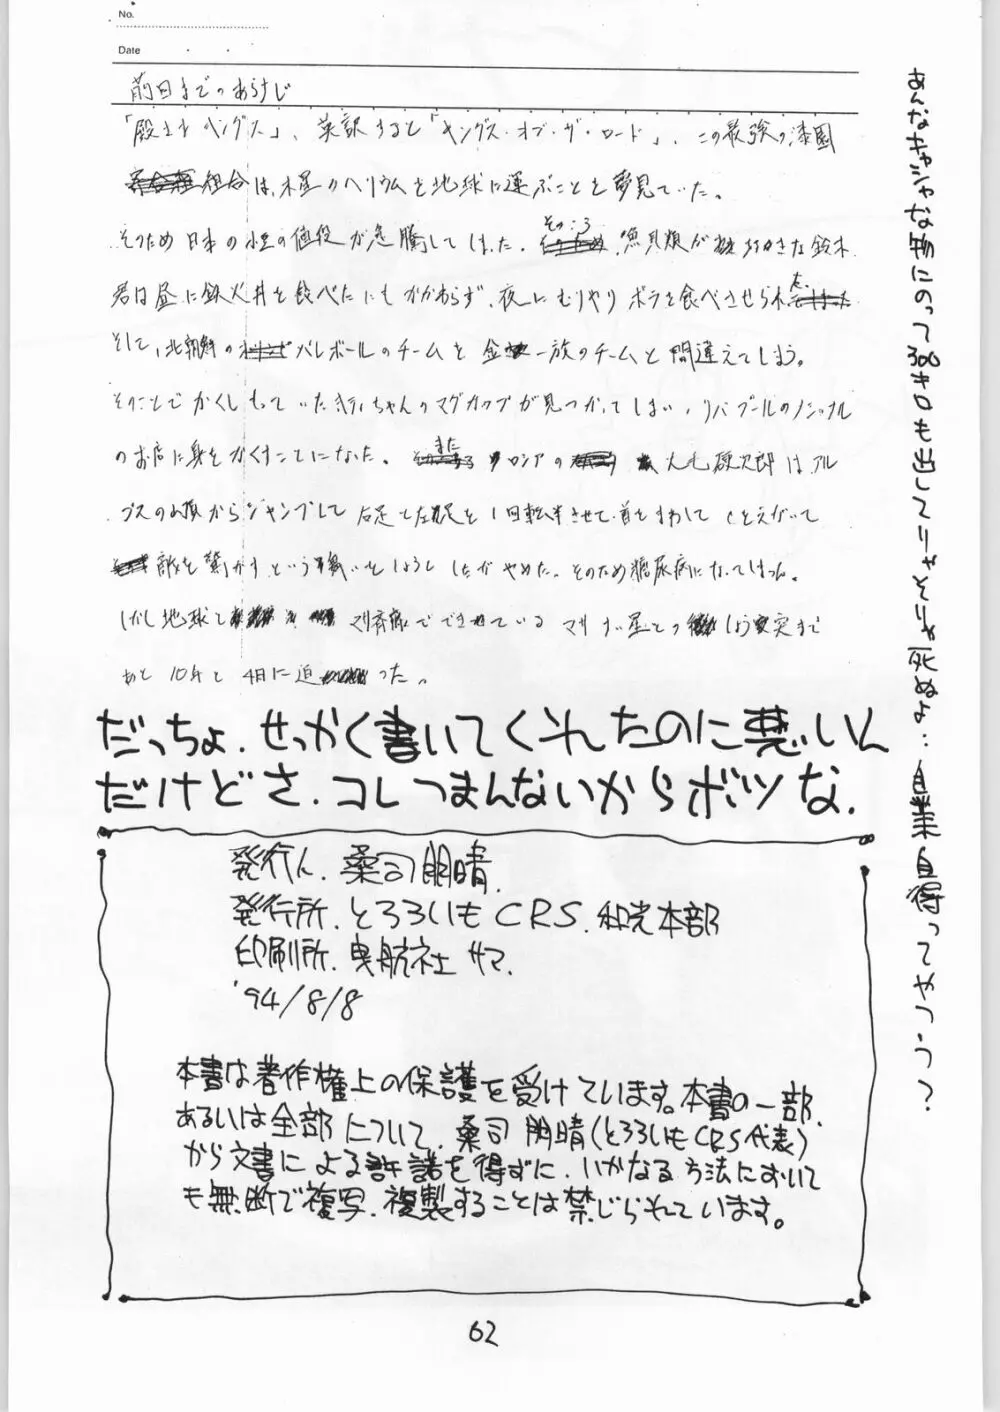 No.
Date
前日までのあらすじ
「殿さまキングス」、英訳すると「キングス・オブ・ザ・ロード」、この最強の漆園
組合は、木星のヘリウムを地球に運ぶことを夢見ていた。
そのため日本の小豆の値段が急騰してしまった。そのころ、魚貝類が大好きな鈴木
君は昼に鉄火丼を食べたにもかかわらず、夜にむりやりボラを食べさせられた。
そして、北朝鮮のバレーボールのチームを金一族のチームと間違えてしまう。
そのことでかくしもっていたキティちゃんのマグカップが見つかってしまい、リバプールの
のお店に身をかくすことになった。また ロシアの 大毛硬次郎はアル
プスの山頂からジャンプして右足と左足を1回転半させて首をまわして
敵を驚かすという戦いをしようとしたがやめた。そのため糖尿病になってしまった。
しかし地球と でできている との しょう突まで
あと10年と4日に迫った。
だっちょ.せっかく書いてくれたのに悪いん
だけどさ.コレつまんないからボツな.
発行人.桑司朋晴.
発行所.とろろいもCRS.和光本部
印刷所.曳航社サマ.
'94/8/8
本書は著作権上の保護を受けています。本書の一部.
あるいは全部について.桑司朋晴(とろろいもCRS代表)
から文書による許諾を得ずに.いかなる方法において
も無断で複写.複製することは禁じられています。
あんなキャシャな物にのって300キロも出してりゃそりゃ死ぬよ…自業自得ってやつぅ?
62